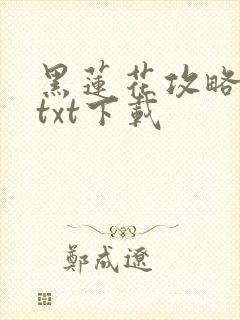 黑蓮花攻略
txt下載
鄭成遼